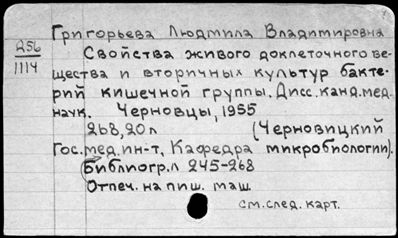 Григорьева Людмила Владимировна
Д56
1114
Свойства живого доклеточного ве-
щества и вторичных культур бакте-
рий кишечной группы. Дисс. канд. мед.
наук. Черновцы, 1955
268, 20 л (Черновицкий
Гос. мед. ин-т, Кафедра микробиологии).
Библиогр. л 245-268
Отпеч. на пиш. маш.
см. след. карт.